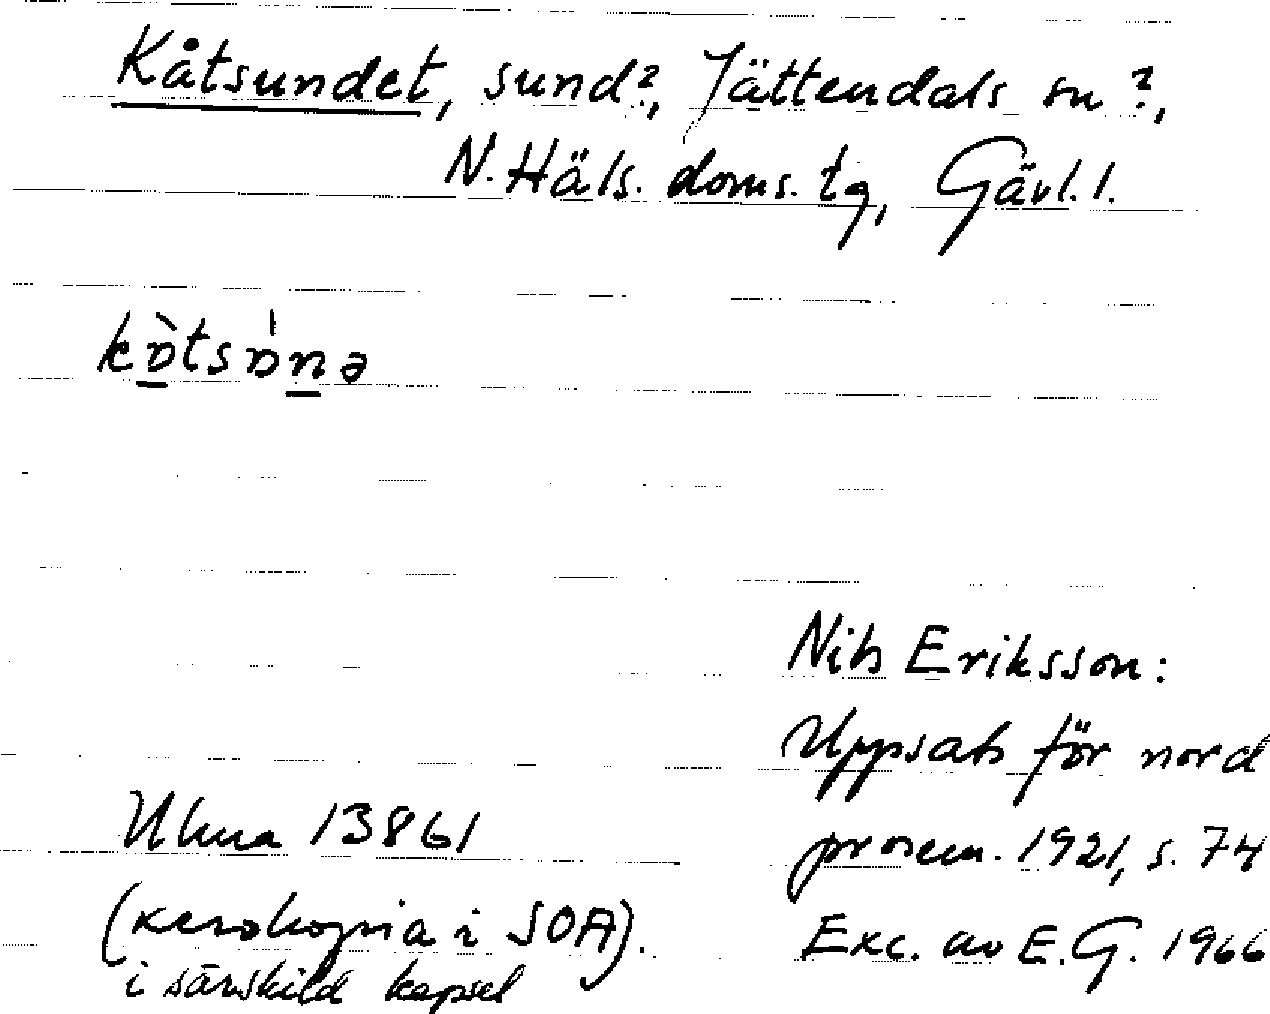 Kåtsundet, sund?, Jättendals sn?,
N. Häls. doms. tg, Gävl. l.
kɒ̀tsɒ̍nə
Nils Eriksson:
Uppsats för nord
prosem. 1921, s. 74
Exc. av E.G. 1966
Ulma 13861
(xerokopia i SOA).
i särskild kapsel